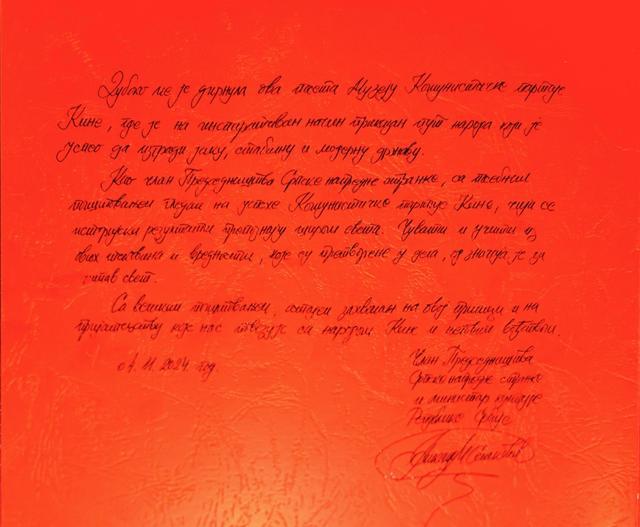 Дубоко ме је дирнула ова посета Музеју Комунистичке партије
Кине, где је на инспиративан начин приказан пут народа који је
успео да изгради јаку, стабилну и модерну државу.
Као члан Председништва Српске напредне странке, са посебним
поштовањем гледам на успехе Комунистичке партије Кине, чији се
историјски резултати препознају широм света. Чувати и учити из
ових и вредности, које су претворене у дела, од значаја је за
читав свет.
Са великим поштовањем, остајем захвалан на овој прилици и на
пријатељству које нас повезује са народом Кине и његовим
04.11.2024. год.
Члан Председништва
Српске напредне странке
и министар културе
Републике Србије